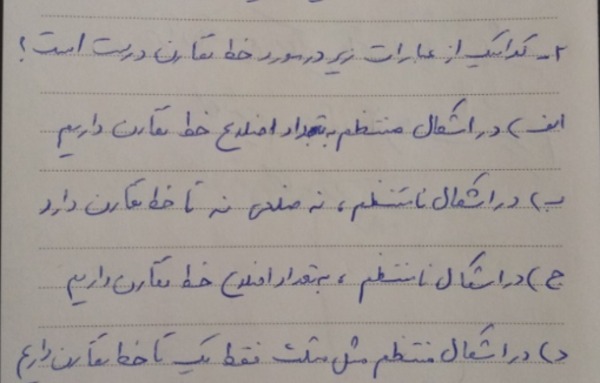 ۲- کدامیک از عبارات زیر در مورد خط تقارن درست است؟
الف) در اشکال منتظم به تعداد اضلاع خط تقارن داریم
ب) در اشکال نامنتظم، نه ضلعی نه تا خط تقارن دارد
ج) در اشکال نامنتظم، به تعداد اضلاع خط تقارن داریم
د) در اشکال منتظم مثل مثلث فقط یک تا خط تقارن داریم